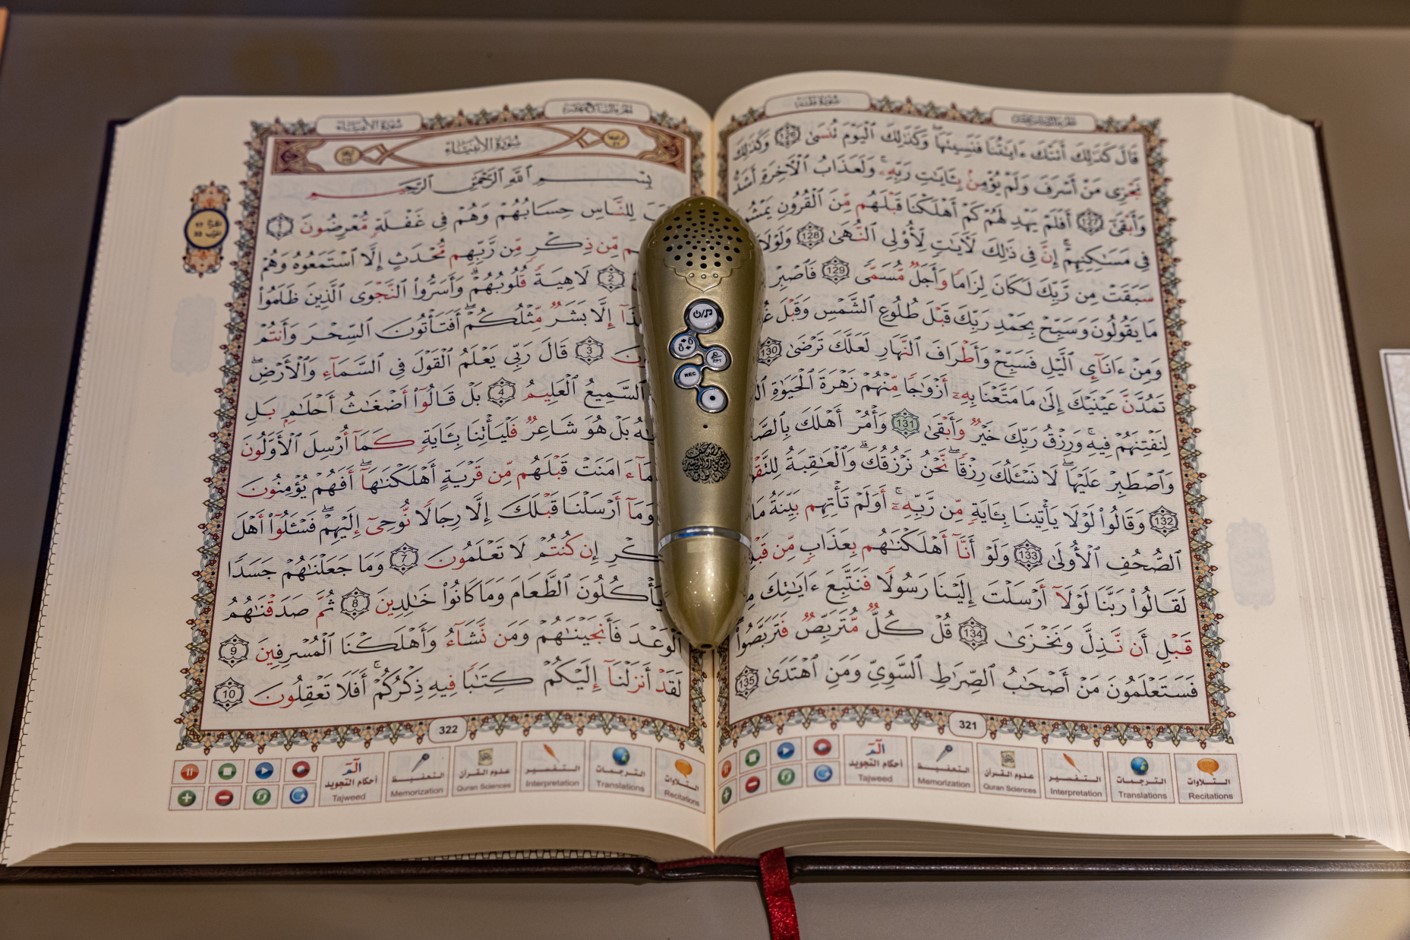 سُورَةُ طه
الجزء السادس عشر
قَالَ كَذَٰلِكَ أَتَتْكَ ءَايَٰتُنَا فَنَسِيتَهَا ۖ وَكَذَٰلِكَ ٱلْيَوْمَ تُنسَىٰ 126 وَكَذَٰلِكَ
نَجْزِى مَنْ أَسْرَفَ وَلَمْ يُؤْمِنۢ بِـَٔايَٰتِ رَبِّهِۦ ۚ وَلَعَذَابُ ٱلْـَٔاخِرَةِ أَشَدُّ
وَأَبْقَىٰٓ 127 أَفَلَمْ يَهْدِ لَهُمْ كَمْ أَهْلَكْنَا قَبْلَهُم مِّنَ ٱلْقُرُونِ
فِى مَسَٰكِنِهِمْ ۗ إِنَّ فِى ذَٰلِكَ لَـَٔايَٰتٍ لِّأُو۟لِى ٱلنُّهَىٰ 128 وَلَوْلَا
سَبَقَتْ مِن رَّبِّكَ لَكَانَ لِزَامًا وَأَجَلٌ مُّسَمًّى 129 فَٱصْبِرْ
مَا يَقُولُونَ وَسَبِّحْ بِحَمْدِ رَبِّكَ قَبْلَ طُلُوعِ ٱلشَّمْسِ وَقَبْلَ
وَمِنْ ءَانَآئِ ٱلَّيْلِ فَسَبِّحْ وَأَطْرَافَ ٱلنَّهَارِ لَعَلَّكَ تَرْضَىٰ 130
تَمُدَّنَّ عَيْنَيْكَ إِلَىٰ مَا مَتَّعْنَا بِهِۦٓ أَزْوَٰجًا مِّنْهُمْ زَهْرَةَ ٱلْحَيَوٰةِ
لِنَفْتِنَهُمْ فِيهِ ۚ وَرِزْقُ رَبِّكَ خَيْرٌ وَأَبْقَىٰ 131 وَأْمُرْ أَهْلَكَ
وَٱصْطَبِرْ عَلَيْهَا ۖ لَا نَسْـَٔلُكَ رِزْقًا ۖ نَّحْنُ نَرْزُقُكَ ۗ وَٱلْعَٰقِبَةُ
132 وَقَالُوا۟ لَوْلَا يَأْتِينَا بِـَٔايَةٍ مِّن رَّبِّهِۦٓ ۚ أَوَلَمْ تَأْتِهِم بَيِّنَةُ مَا
ٱلصُّحُفِ ٱلْأُولَىٰ 133 وَلَوْ أَنَّآ أَهْلَكْنَٰهُم بِعَذَابٍ مِّن
لَقَالُوا۟ رَبَّنَا لَوْلَآ أَرْسَلْتَ إِلَيْنَا رَسُولًا فَنَتَّبِعَ ءَايَٰتِكَ
قَبْلِ أَن نَّذِلَّ وَنَخْزَىٰ 134 قُلْ كُلٌّ مُّتَرَبِّصٌ فَتَرَبَّصُوا۟
فَسَتَعْلَمُونَ مَنْ أَصْحَٰبُ ٱلصِّرَٰطِ ٱلسَّوِىِّ وَمَنِ ٱهْتَدَىٰ 135
321
التلاوات
Recitations
الترجمات
Translations
التفسير
Interpretation
علوم القرآن
Quran Sciences
التحفيظ
Memorization
الم
أحكام التجويد
Tajweed
الجزء السابع عشر
سُورَةُ الأَنبِيَاء
سُورَةُ الأَنبِيَاء
بِسْمِ ٱللَّهِ ٱلرَّحْمَٰنِ ٱلرَّحِيمِ
لِلنَّاسِ حِسَابُهُمْ وَهُمْ فِى غَفْلَةٍ مُّعْرِضُونَ 1
مِّن ذِكْرٍ مِّن رَّبِّهِم مُّحْدَثٍ إِلَّا ٱسْتَمَعُوهُ وَهُمْ
2 لَاهِيَةً قُلُوبُهُمْ ۗ وَأَسَرُّوا۟ ٱلنَّجْوَى ٱلَّذِينَ ظَلَمُوا۟
إِلَّا بَشَرٌ مِّثْلُكُمْ ۖ أَفَتَأْتُونَ ٱلسِّحْرَ وَأَنتُمْ
3 قَالَ رَبِّى يَعْلَمُ ٱلْقَوْلَ فِى ٱلسَّمَآءِ وَٱلْأَرْضِ ۖ
ٱلسَّمِيعُ ٱلْعَلِيمُ 4 بَلْ قَالُوٓا۟ أَضْغَٰثُ أَحْلَٰمٍۭ بَلِ
بَلْ هُوَ شَاعِرٌ فَلْيَأْتِنَا بِـَٔايَةٍ كَمَآ أُرْسِلَ ٱلْأَوَّلُونَ
ءَامَنَتْ قَبْلَهُم مِّن قَرْيَةٍ أَهْلَكْنَٰهَآ ۖ أَفَهُمْ يُؤْمِنُونَ
وَمَآ أَرْسَلْنَا قَبْلَكَ إِلَّا رِجَالًا نُّوحِىٓ إِلَيْهِمْ ۖ فَسْـَٔلُوٓا۟ أَهْلَ
إِن كُنتُمْ لَا تَعْلَمُونَ 7 وَمَا جَعَلْنَٰهُمْ جَسَدًا
يَأْكُلُونَ ٱلطَّعَامَ وَمَا كَانُوا۟ خَٰلِدِينَ 8 ثُمَّ صَدَقْنَٰهُمُ
ٱلْوَعْدَ فَأَنجَيْنَٰهُمْ وَمَن نَّشَآءُ وَأَهْلَكْنَا ٱلْمُسْرِفِينَ 9
لَقَدْ أَنزَلْنَآ إِلَيْكُمْ كِتَٰبًا فِيهِ ذِكْرُكُمْ ۖ أَفَلَا تَعْقِلُونَ 10
322
التلاوات
Recitations
الترجمات
Translations
التفسير
Interpretation
علوم القرآن
Quran Sciences
التحفيظ
Memorization
الم
أحكام التجويد
Tajweed
REC